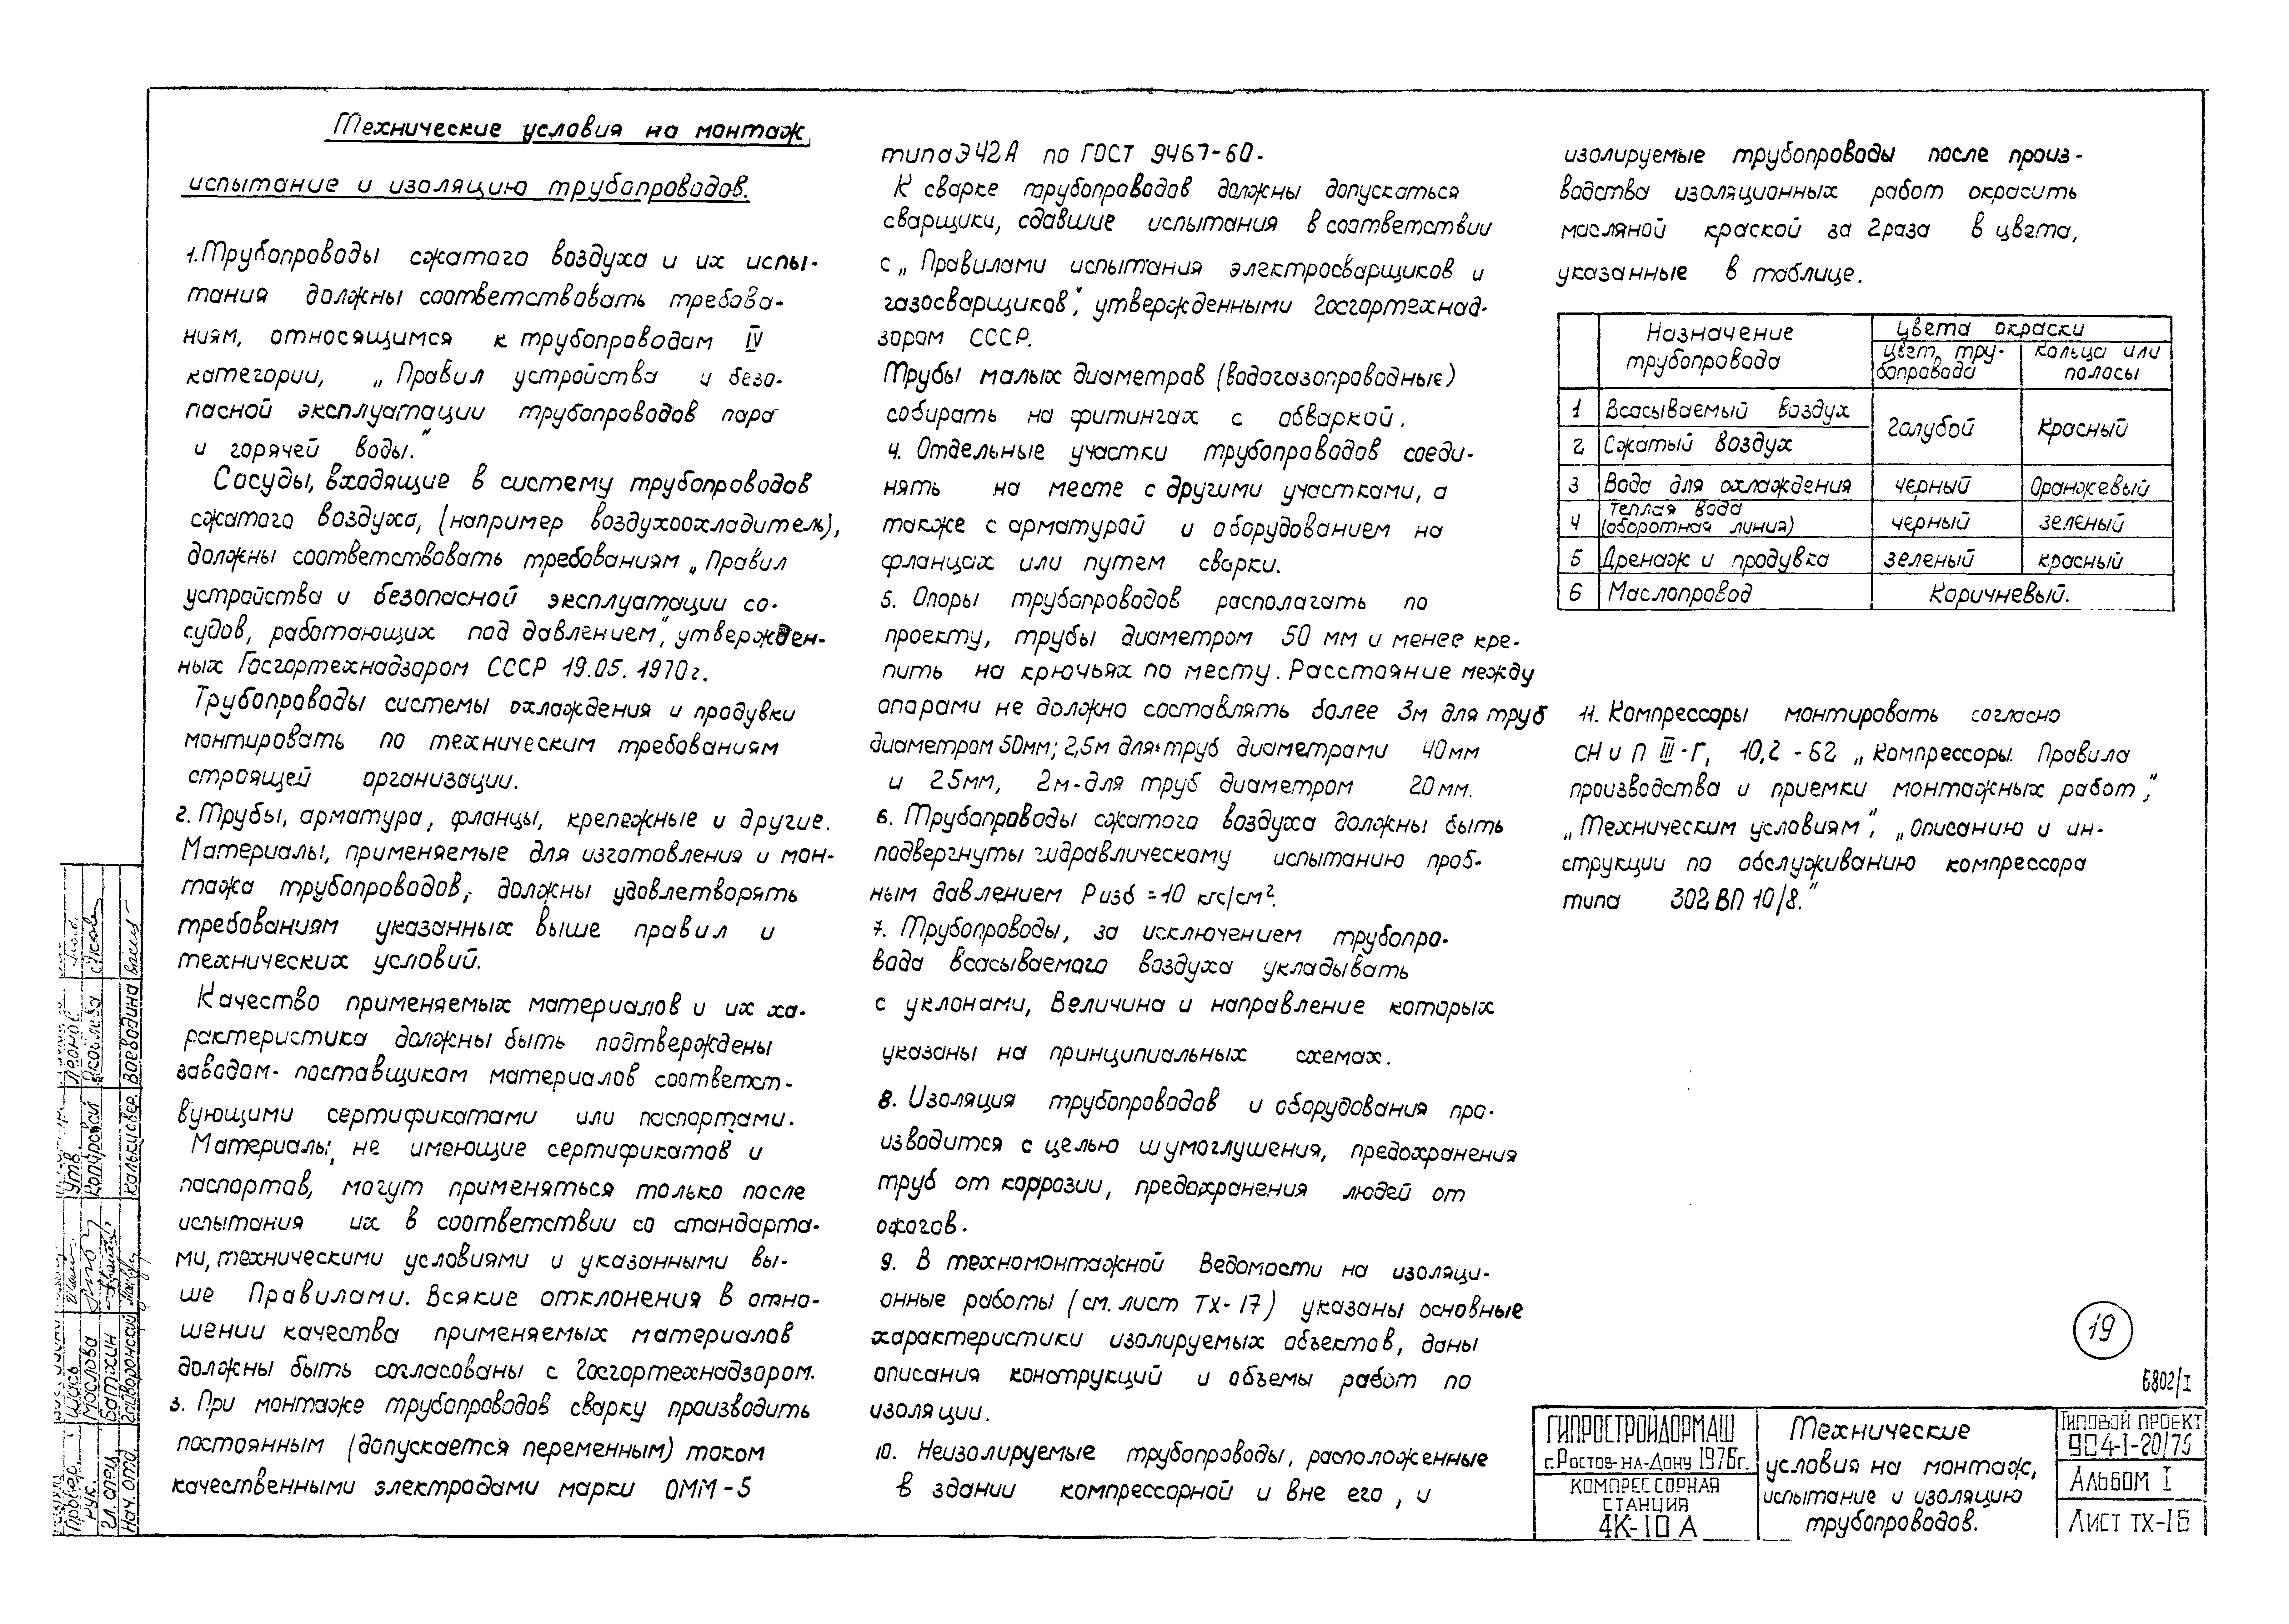 Технические условия на монтаж,
испытание и изоляцию трубопроводов.
1. Трубопроводы сжатого воздуха и их испы-
тания должны соответствовать требова-
ниям, относящимся к трубопроводам IV
категории, „Правил устройства и безо-
пасной эксплуатации трубопроводов пара
и горячей воды."
Сосуды, входящие в систему трубопроводов
сжатого воздуха, (например воздухоохладитель),
должны соответствовать требованиям „Правил
устройства и безопасной эксплуатации со-
судов, работающих под давлением", утвержден-
ных Госгортехнадзором СССР 19.05.1970г.
Трубопроводы системы охлаждения и продувки
монтировать по техническим требованиям
строящей организации.
2. Трубы, арматура, фланцы, крепежные и другие.
Материалы, применяемые для изготовления и мон-
тажа трубопроводов, должны удовлетворять
требованиям указанных выше правил и
технических условий.
Качество применяемых материалов и их ха-
рактеристика должны быть подтверждены
заводом-поставщиком материалов соответст-
вующими сертификатами или паспортами.
Материалы, не имеющие сертификатов и
паспортов, могут применяться только после
испытания их в соответствии со стандарта-
ми, техническими условиями и указанными вы-
ше Правилами. Всякие отклонения в отно-
шении качества применяемых материалов
должны быть согласованы с Госгортехнадзором.
3. При монтаже трубопроводов сварку производить
постоянным (допускается переменным) током
качественными электродами марки ОММ-5
типа Э42А по ГОСТ 9467-60.
К сварке трубопроводов должны допускаться
сварщики, сдавшие испытания в соответствии
с „Правилами испытания электросварщиков и
газосварщиков", утвержденными Госгортехнад-
зором СССР.
Трубы малых диаметров (водогазопроводные)
собирать на фитингах с обваркой.
4. Отдельные участки трубопроводов соеди-
нять на месте с другими участками, а
также с арматурой и оборудованием на
фланцах или путем сварки.
5. Опоры трубопроводов располагать по
проекту, трубы диаметром 50 мм и менее кре-
пить на крючьях по месту. Расстояние между
опорами не должно составлять более 3м для труб
диаметром 50мм; 2,5м для труб диаметрами 40мм
и 25мм, 2м-для труб диаметром 20мм.
6. Трубопроводы сжатого воздуха должны быть
подвергнуты гидравлическому испытанию проб-
ным давлением Ризб =10 кгс/см².
7. Трубопроводы, за исключением трубопро-
вода всасываемого воздуха укладывать
с уклонами, Величина и направление которых
указаны на принципиальных схемах.
8. Изоляция трубопроводов и оборудования про-
изводится с целью шумоглушения, предохранения
труб от коррозии, предохранения людей от
ожогов.
9. В техномонтажной Ведомости на изоляци-
онные работы (см. лист ТХ-17) указаны основные
характеристики изолируемых объектов, даны
описания конструкций и объемы работ по
изоляции.
10. Неизолируемые трубопроводы, расположенные
в здании компрессорной и вне его, и
изолируемые трубопроводы после произ-
водства изоляционных работ окрасить
масляной краской за 2раза в цвета,
указанные в таблице.
Назначение трубопровода Цвета окраски
Цвет тру-бопровода Кольца или полосы
1 Всасываемый воздух голубой Красный
2 Сжатый воздух
3 Вода для охлаждения черный Оранжевый
4 Теплая вода (оборотная линия) черный зеленый
5 Дренаж и продувка зеленый красный
6 Маслопровод Коричневый.
11. Компрессоры монтировать согласно
СН и П III-Г, 10,2-62 „Компрессоры. Правила
производства и приемки монтажных работ",
„Техническим условиям", „Описанию и ин-
струкции по обслуживанию компрессора
типа 302 ВП 10/8."
19
6802/I
ГИПРОСТРОЙДОРМАШ
г.Ростов-на-Дону 1976г.
КОМПРЕССОРНАЯ
СТАНЦИЯ
4К-10 А
Технические
условия на монтаж,
испытание и изоляцию
трубопроводов.
Типовой проект
904-1-20/75
Альбом I
Лист ТХ-16
Нач. отд. Калькусвер. Воеводина
Гл. спец. Батхин
Рук. Маслова Яковлева
Провер. Шась Утв.